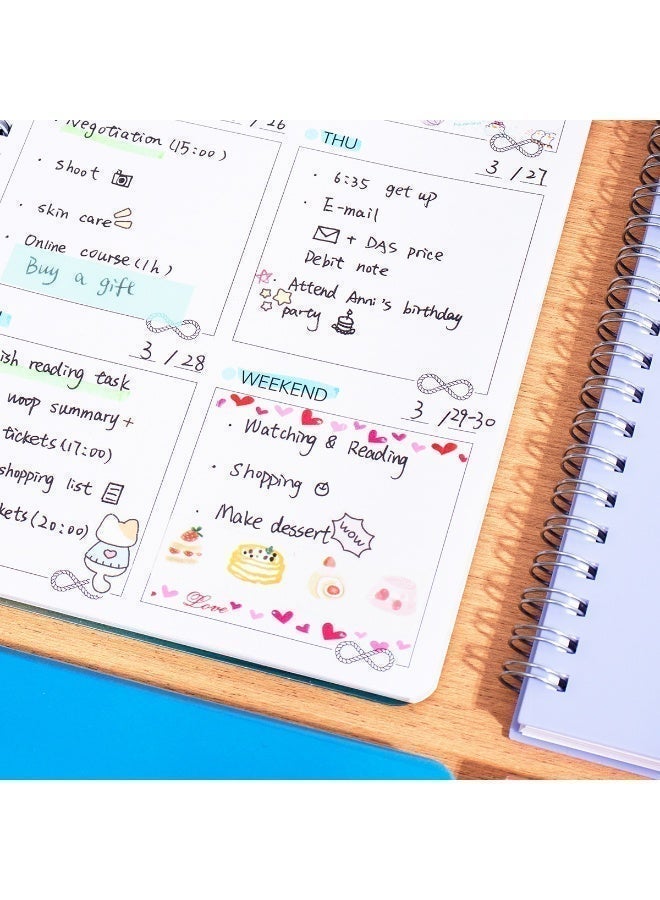 /26
Negotiation (15:00)
· shoot
· skin care
· Online course (1h)
Buy a gift
THU
3 /27
· 6:35 get up
· E-mail
+ DAS price
Debit note
· Attend Anni's birthday
party
3 /28
ish reading task
woop summary+
tickets (17:00)
shopping list
kets (20:00)
WEEKEND
3 /29-30
· Watching & Reading
· Shopping
· Make dessert
wow
Love